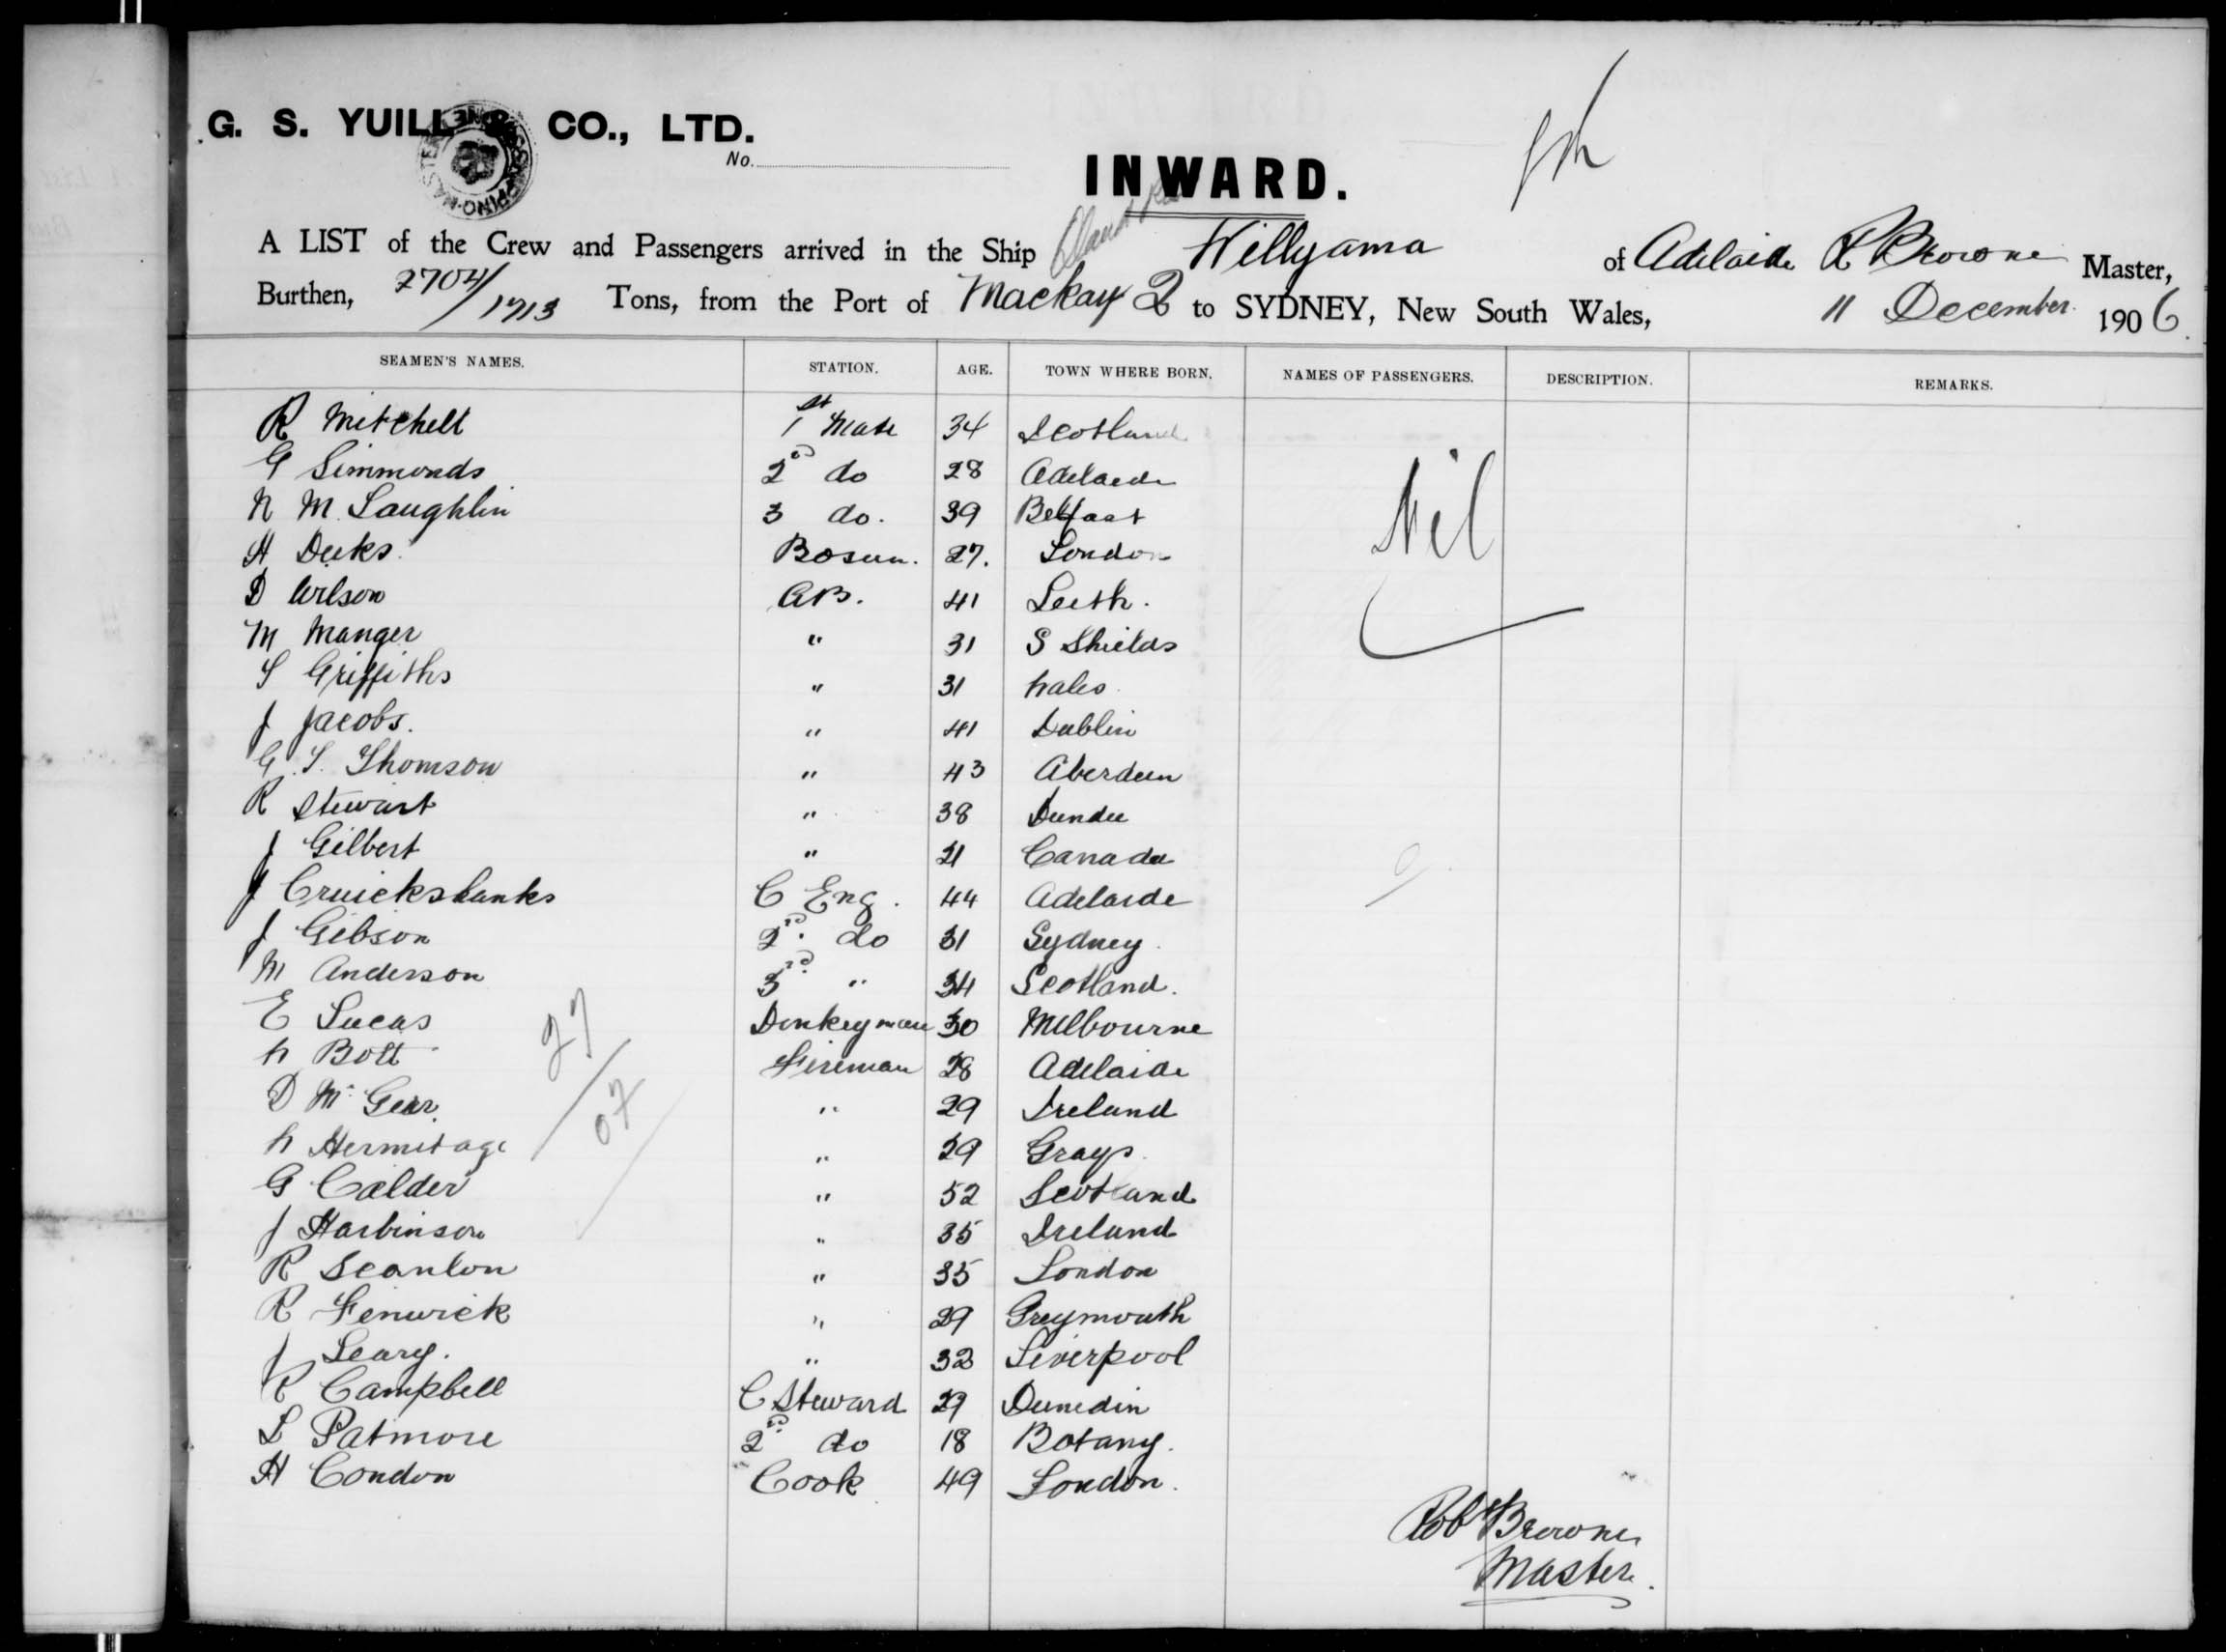 G. S. YUILL & CO., LTD.
No.
INWARD.
A LIST of the Crew and Passengers arrived in the Ship Willyama of Adelaide R Browne Master,
Burthen, 2704/1713 Tons, from the Port of Mackay Q to SYDNEY, New South Wales, 11 December 1906.
SEAMEN'S NAMES. STATION. AGE. TOWN WHERE BORN. NAMES OF PASSENGERS. DESCRIPTION. REMARKS.
R Mitchell 1st Mate 34 Scotland
G Simmonds 2nd do 28 Adelaide
N McLaughlin 3 do. 39 Belfast
H Deeks. Bosun. 27. London
D Wilson AB. 41 Leith.
M Manger " 31 S Shields
S Griffiths " 31 Wales
J Jacobs. " 41 Dublin
G. S. Thomson " 43 Aberdeen
R Stewart " 38 Dundee
J Gilbert " 21 Canada
J Cruickshanks C Eng. 44 Adelaide
J Gibson 2nd. do 31 Sydney.
M Anderson 3rd. " 34 Scotland.
E Lucas Donkeyman 30 Melbourne
W Bott Fireman 28 Adelaide
D McGear " 29 Ireland
W Hermitage " 39 Grays
G Calder " 52 Scotland
J Harbinson " 35 Ireland
R Scanlon " 35 London
R Fenwick " 29 Greymouth
J Leary. " 32 Liverpool
R Campbell C Steward 29 Dunedin
L Patmore 2nd. do 18 Botany.
H Condon Cook 49 London.
Nil
27/07
Robt Browne
Master.